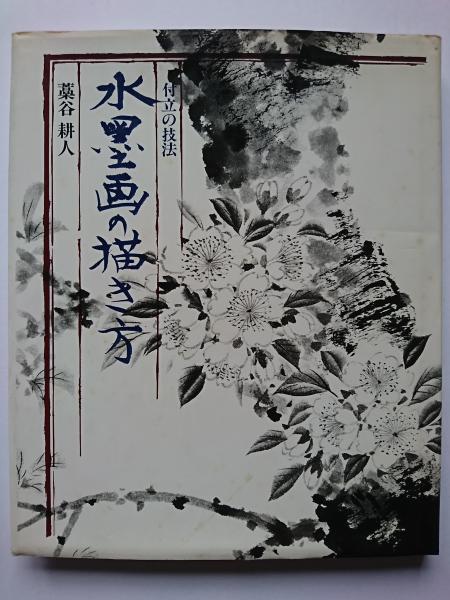 付立の技法
水墨画の描き方
藁谷 耕人